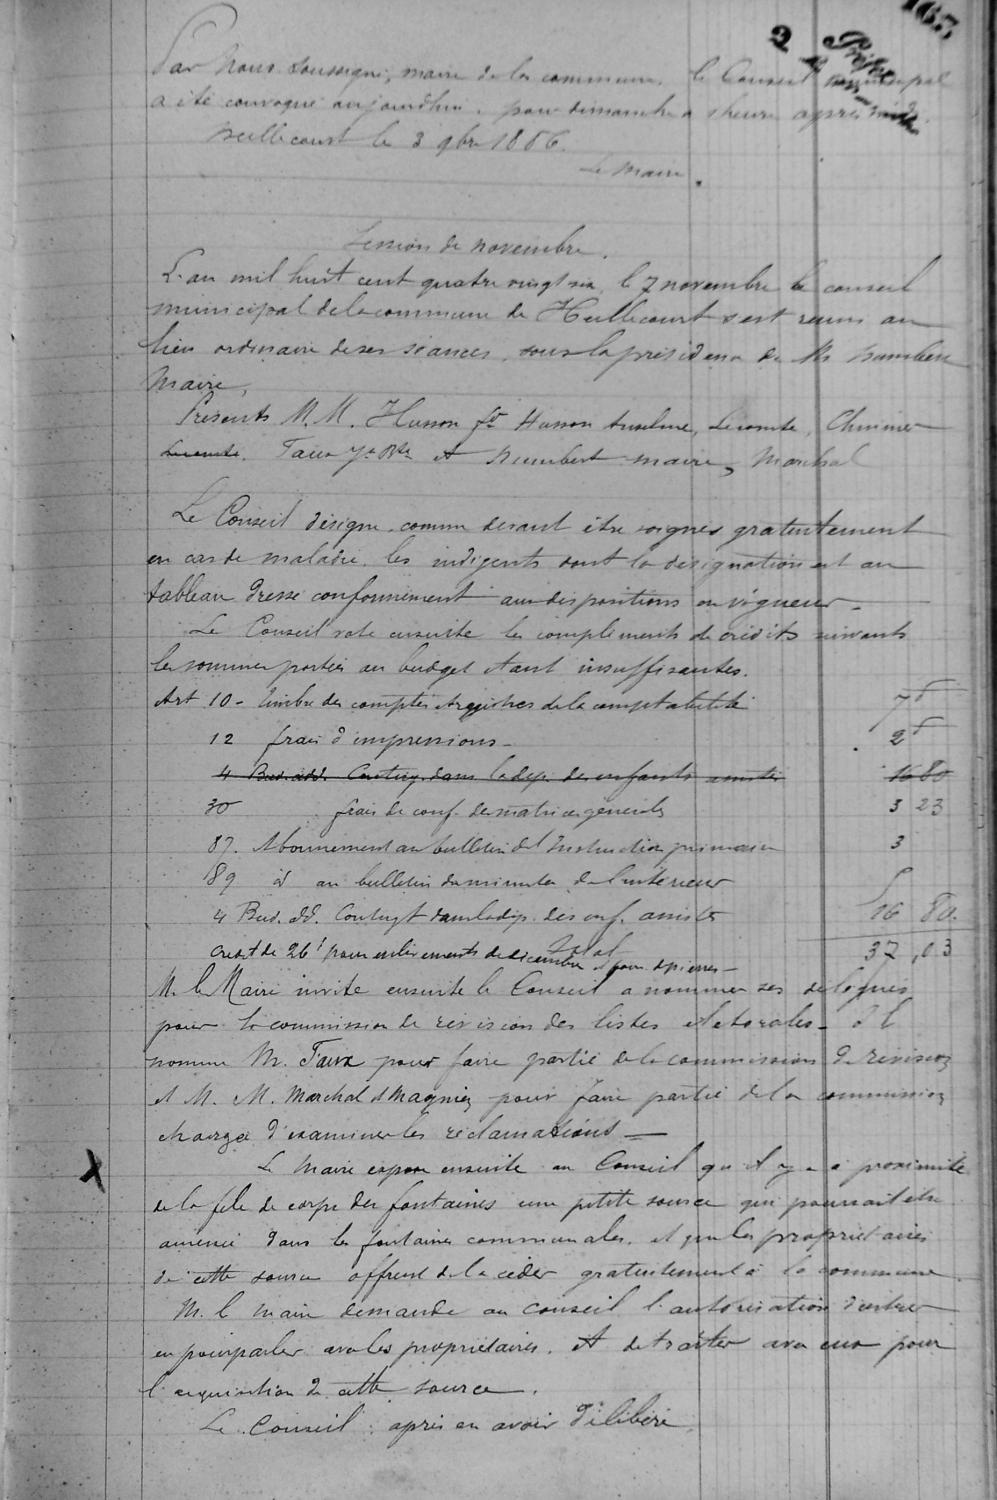 167
2
Par nous soussigné, maire de la commune, le Conseil municipal
a été convoqué aujourdhui, pour dimanche a 1 heure après midi.
Huillecourt le 3 9bre 1886.
Le Maire.
Session de novembre.
L'an mil huit cent quatre vingt six, le 7 novembre le conseil
municipal de la commune de Huillecourt s'est réuni au
lieu ordinaire de ses séances, sous la présidence de Mr Humbert
Maire,
Présents M.M. Husson fs Husson Anselme, Lecomte,
Lecomte. et Humbert maire, Marchal
Le Conseil désigne, comme devant être soignés gratuitement
en cas de maladie, les indigents dont la désignation est au
tableau dressé conformément aux dispositions en vigueur.
Le Conseil vote ensuite les compléments de crédits suivants
les sommes portées au budget étant insuffisantes.
Art 10 - Timbre des comptes et registres de la comptabilité 7f
12 frais d'impressions - 2f
4 Bud. add. Conting. dans la dep. des enfants assistés 16 80
30 frais de conf. des matrices générales 3 23
87. Abonnement au bulletin de l'Instruction primaire 3
89 id au bulletin du ministère de l'interieur 5
4 Bud. Ad. Contingt dans la dép. des enf. assistés 16 80.
Total 37,03
Credit de 26f pour enlèvements de décembre et pour
M. le Maire invite ensuite le Conseil a nommer ses délégués
pour la commission de révision des listes électorales - Il
nomme M. Taux pour faire partie de la commission de révision
et M. M. Marchal et Magnien pour faire partie de la commission
chargée d'examiner les réclamations —
X Le Maire expose ensuite au Conseil qu'il y a à proximité
de la file de corps des fontaines une petite source qui pourrait être
amenée dans les fontaines communales, et que les propriétaires
de cette source offrent de la céder gratuitement à la commune.
M. le Maire demande au conseil l'autorisation d'entrer
en pourparler avec les propriétaires. Et de traiter avec eux pour
l'acquisition de cette source.
Le Conseil : après en avoir délibéré,